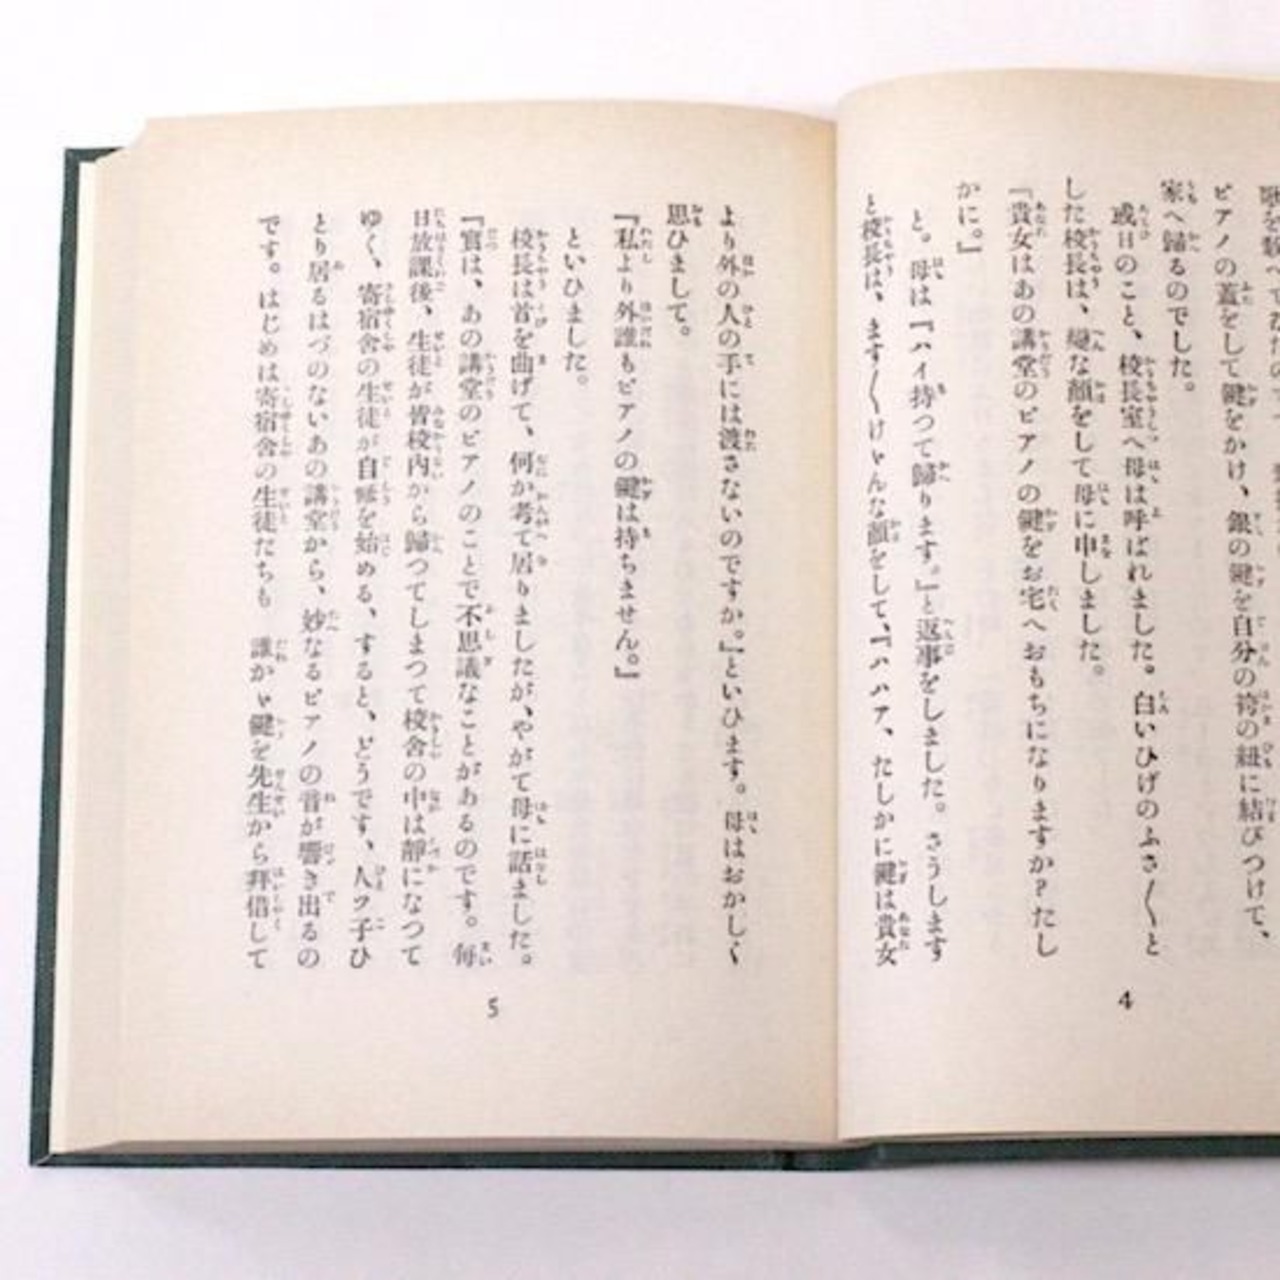 ピアノの蓋をして鍵をかけ、銀の鍵を自分の袴の紐に結びつけて、
家へ歸るのでした。
或日のこと、校長室へ母は呼ばれました。白いひげのふさ〱と
した校長は、變な顔をして母に申しました。
『貴女はあの講堂のピアノの鍵をお宅へおもちになりますか？たし
かに。』
と。母は『ハイ持つて歸ります。』と返事をしました。さうします
と校長は、ます〱けゞんな顔をして、『ハハア、たしかに鍵は貴女
4
より外の人の手には渡さないのですか。』といひます。母はおかしく
思ひまして。
『私より外誰もピアノの鍵は持ちません。』
といひました。
校長は首を曲げて、何か考て居りましたが、やがて母に話ました。
『實は、あの講堂のピアノのことで不思議なことがあるのです。毎
日放課後、生徒が皆校内から歸つてしまつて校舎の中は靜になつて
ゆく、寄宿舎の生徒が自修を始める、すると、どうです、人ツ子ひ
とり居るはづのないあの講堂から、妙なるピアノの音が響き出るの
です。はじめは寄宿舎の生徒たちも 誰かゞ鍵を先生から拜借して
5